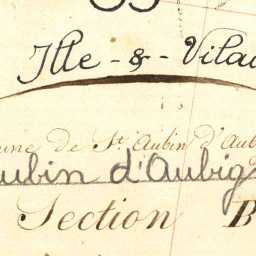 Ille - & - Vilai
une de St. Aubin d'Aub
ubin d'Aubig
Section B